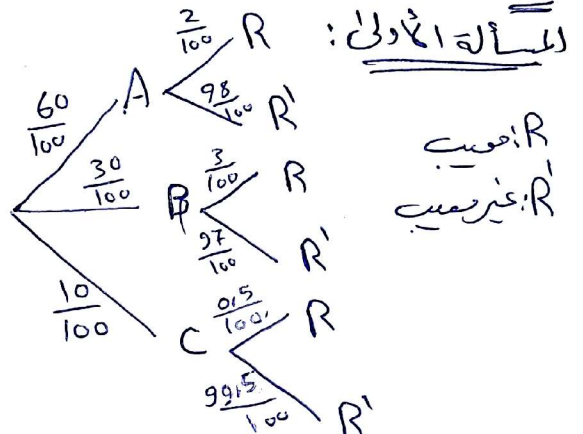 المسألة الأولى:
R: معيب
R': غير معيب
60/100 A
2/100 R
98/100 R'
30/100 B
3/100 R
97/100 R'
10/100 C
0,5/100 R
99,5/100 R'